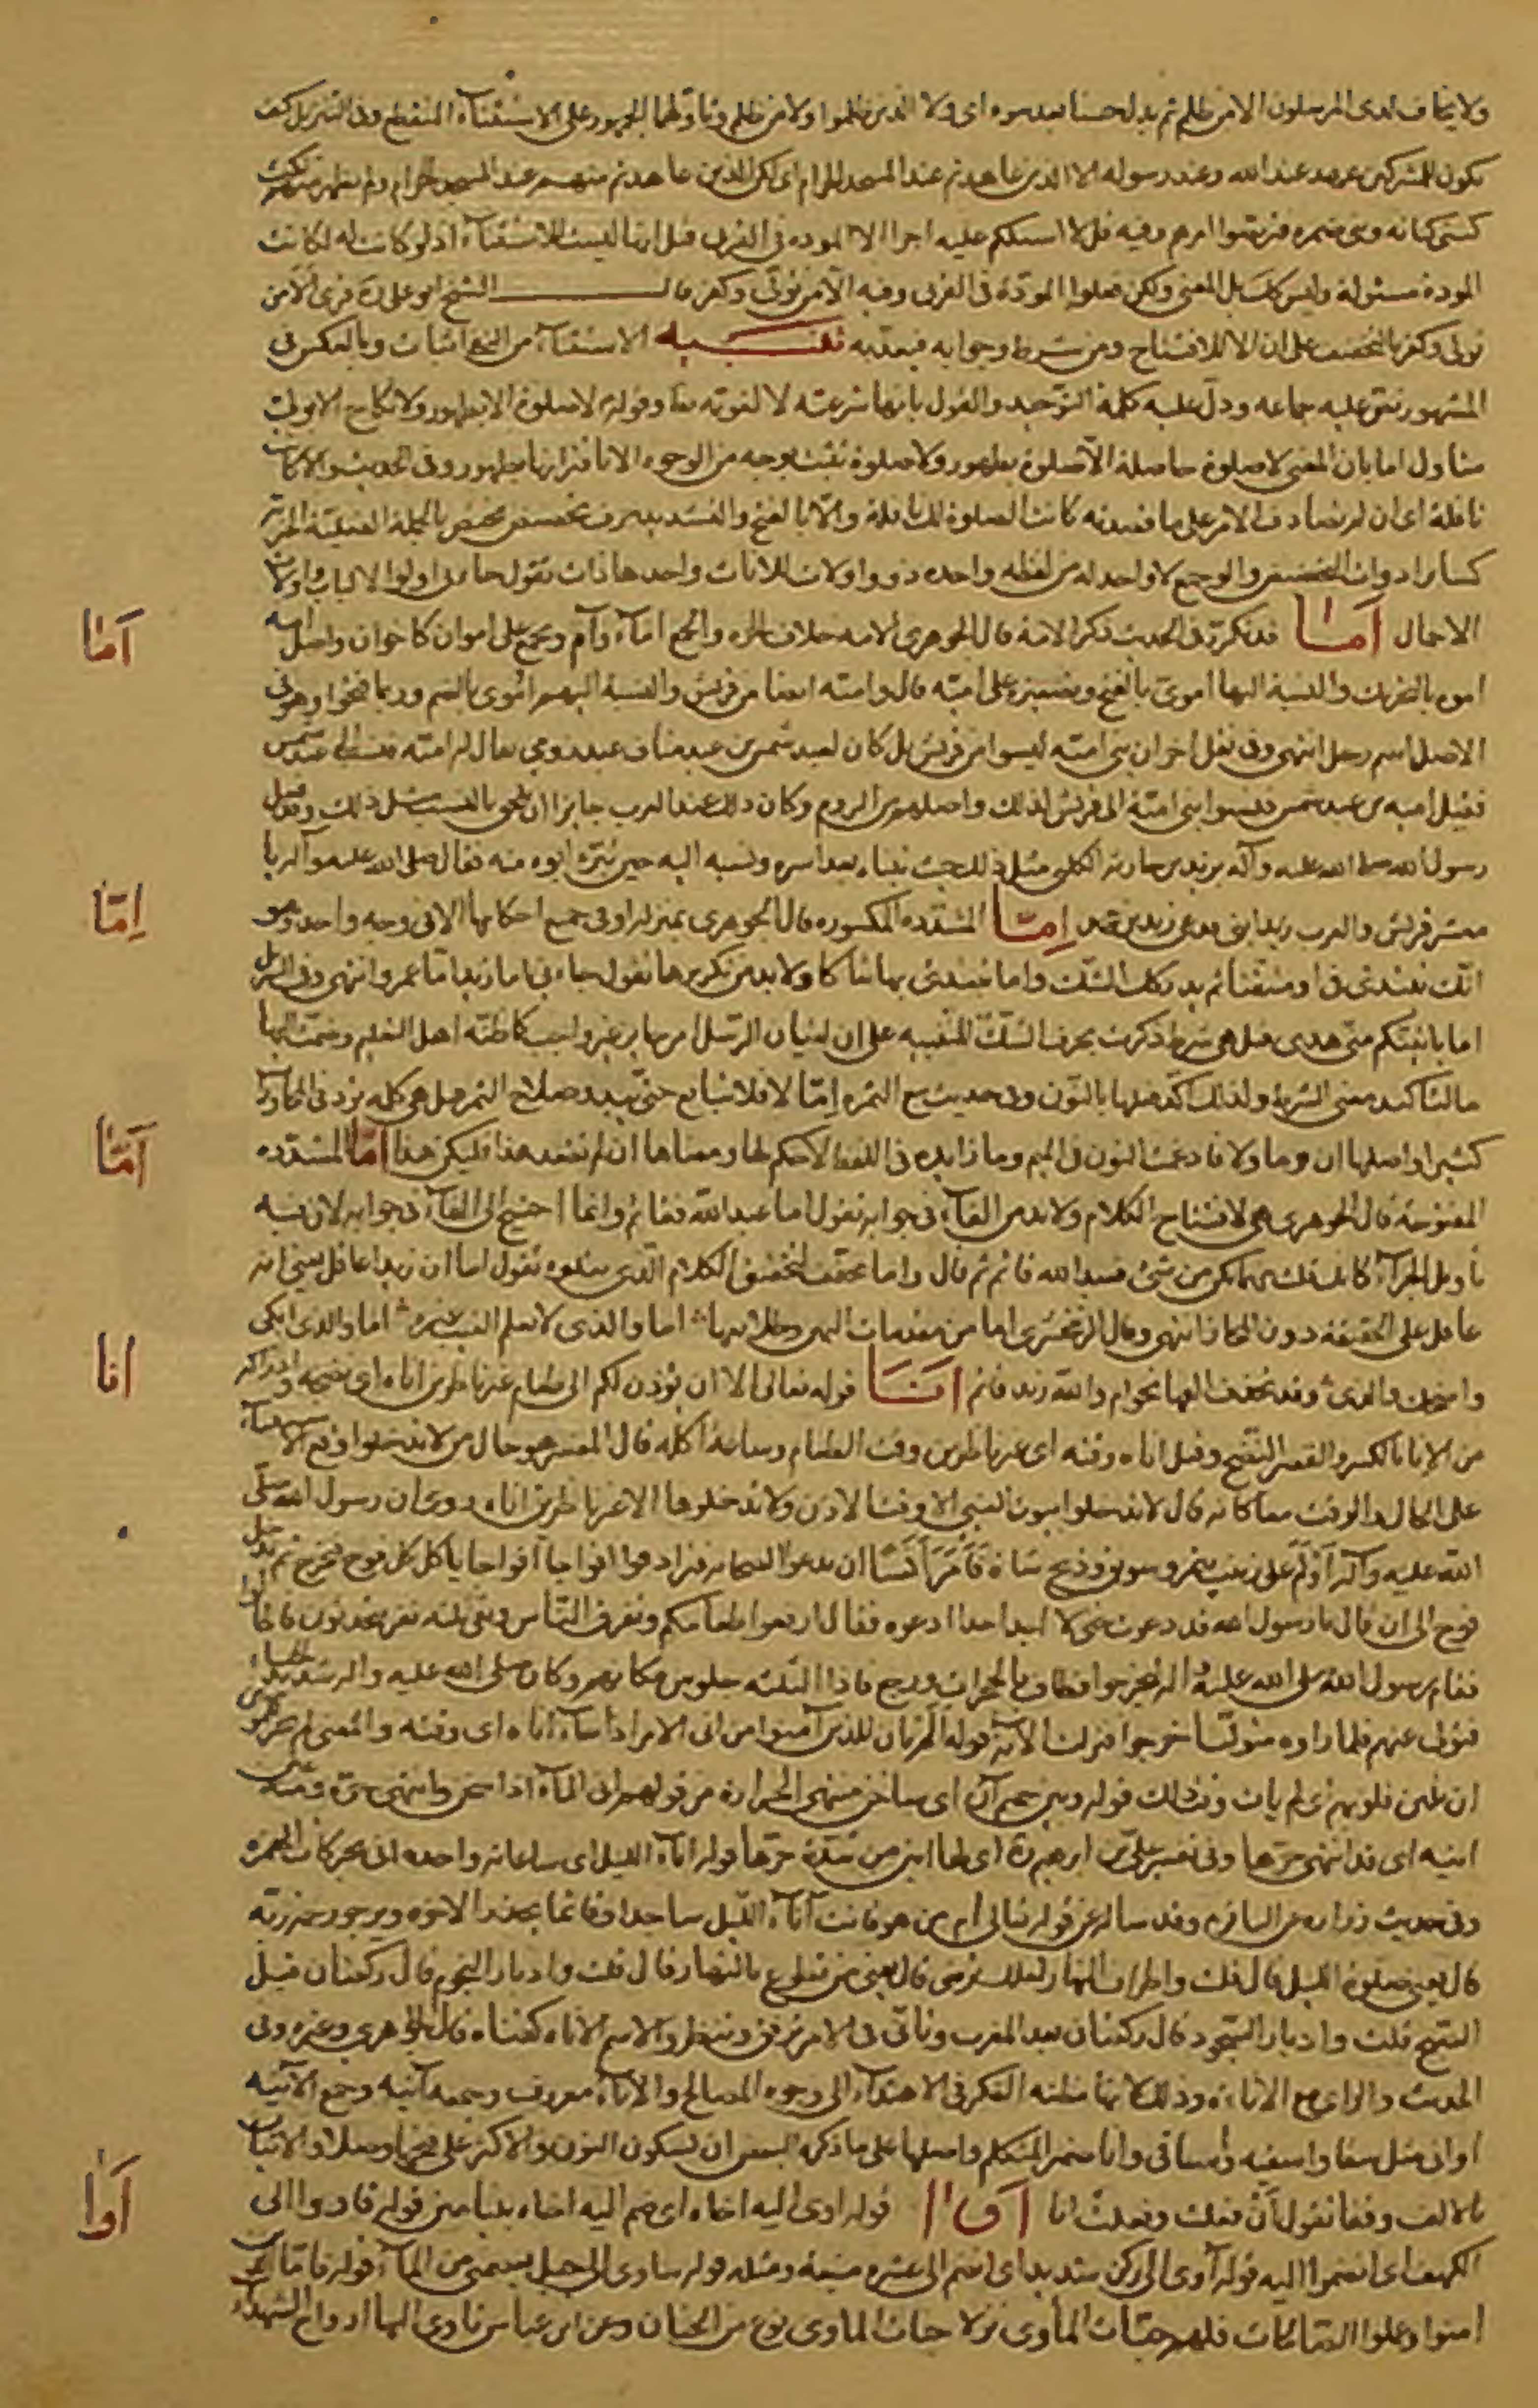 ولا يخاف لدى المرسلون الا من ظلم ثم بدل حسنا بعد سوء اى ولا الذين ظلموا ولا من ظلم وتاولها الجمهور على الاستثناء المنقطع وفى التنزيل كيف
يكون للمشركين عهد عند الله وعند رسوله الا الذين عاهدتم عند المسجد الحرام اى لكن الذين عاهدتم منهم عند المسجد الحرام ولم يظهر منهم نكث
كبنى كنانه وبنى ضمره فتربصوا امرهم وفيه قل لا اسئلكم عليه اجرا الا الموده فى القربى قيل انها ليست للاستثناء اذ لو كانت له لكانت
المودة مسئولة وليس كك بل المعنى ولكن افعلوا المودة فى القربى وفيه الا من تولى وكفر قال الشيخ ابو على ره قرئ الا من
تولى وكفر بالتخفيف على ان الا للافتتاح ومن شرط وجوابه فيعذبه تنبيه الاستثناء من النفى اثبات وبالعكس فى
المشهور نص عليه جماعه ودل عليه كلمة التوحيد والقول بانها شرعيه لا لغويه وقوله لا صلوة الا بطهور ولا نكاح الا بولى
متاول اما بان المعنى لا صلوة حاصلة الا صلوة بطهور ولا صلوة تثبت بوجه من الوجوه الا باقترانها بطهور وفى الحديث والا كانت
نافلة اى ان لم يصادف الامر على ما قصدته كانت الصلوة لك نافلة والا بالفتح والتشديد حرف تحضيض مختص بالجملة الفعلية الخبرية
كساير ادوات التحضيض والو جمع لا واحد له من لفظه واحده ذو واولات للاناث واحدها ذات تقول جاءنى اولوا الالباب واولات
الاحمال اما قد تكرر فى الحديث ذكر الامة قال الجوهرى الامه خلاف الحره والجمع اماء وآم وتجمع على اموان كاخوان واصل امه
اموه بالتحريك والنسبة اليها اموى بالفتح وتصغيرها على امية قال وامية ايضا من قريش والنسبة اليهم اموى بالضم وربما فتحوا وهو فى
الاصل اسم رجل انتهى وفى نقل اخر ان بنى امية ليسوا من قريش بل كان لعبد شمس بن عبد مناف عبد رومى يقال له امية فنسب الى عبد شمس
فقيل امية بن عبد شمس فنسبوا بنى امية الى قريش لذلك واصلهم من الروم وكان ذلك عند العرب جايزا ان يلحق بالنسب مثل ذلك وقد فعل
رسول الله صلى الله عليه وآله بزيد بن حارثه الكلبى مثل ذلك حيث تبناه بعد اسره ونسبه اليه حين تبرء ابوه منه فقال صلى الله عليه وآله يا
معشر قريش والعرب زيد ابنى اما المشدده المكسوره قال الجوهرى بمنزلة او فى جميع احكامها الا فى وجه واحد وهو
انك تبتدئ فى او متيقنا ثم يدركك الشك واما تبتدئ بها شاكا ولا بد من تكريرها تقول جاءنى اما زيد اما عمرو انتهى وفى التنزيل
اما ياتينكم منى هدى قيل هى شرط ذكرت بحرف الشك للتنبيه على ان اتيان الرسل امر جايز غير واجب كما ظنه اهل التعليم وضمت اليها
ما لتاكيد معنى الشرط ولذلك اكد فعلها بالنون وفى حديث بيع الثمره اما لا فلا تبايع حتى يبدو صلاح الثمر قيل هى كلمه ترد فى المحاورات
كثيرا واصلها ان وما ولا فادغمت النون فى الميم وما زايده فى اللفظ لا حكم لها ومعناها ان لم تفعل هذا فليكن هذا اما المشدده
المفتوحة قال الجوهرى هى لافتتاح الكلام ولا بد من الفاء فى جوابه تقول اما عبد الله فقائم وانما احتيج الى الفاء فى جوابه لان فيه
تاويل الجزاء كانك قلت مهما يكن من شئ فعبد الله قائم ثم قال واما مخفف لتحقيق الكلام الذى يتلوه تقول اما ان زيدا عاقل يعنى انه
عاقل على الحقيقة دون المجاز انتهى وقال الزمخشرى اما من مقدمات اليمين وطلايعها اما والذى لا يعلم الغيب غيره اما والذى ابكى
واضحك والذى وقد تحذف الفها نحو ام والله زيد قائم انا قوله تعالى الا ان يؤذن لكم الى طعام غير ناظرين اناه اى نضجه وادراكه
من الانا بالكسر والقصر النضج وقيل اناه وقته اى غير ناظرين وقت الطعام وساعة اكله قال المفسر هو حال من لا تدخلوا وقع الاستثناء
على الحال والوقت معا كانه قال لا تدخلوا بيوت النبى الا وقت الاذن ولا تدخلوها الا غير ناظرين اناه روى ان رسول الله صلى
الله عليه وآله اولم على زينب بتمر وسويق وذبح شاة فامر انسا ان يدعو اصحابه فترادفوا افواجا افواجا ياكل كل فوج فيخرج ثم يدخل
فوج الى ان قال يا رسول الله قد دعوت حتى لا اجد احدا ادعوه فقال ارفعوا طعامكم وتفرق الناس وبقى ثلثه نفر يتحدثون فاطالوا
فقام رسول الله صلى الله عليه وآله ليخرجوا فطاف بالحجرات ورجع فاذا الثلثه جلوس مكانهم وكان صلى الله عليه وآله شديد الحياء
فتولى عنهم فلما راوه متوليا خرجوا فنزلت الآية قوله الم يان للذين آمنوا من انى الامر اذا جاء اناه اى وقته والمعنى
ان تلين قلوبهم اى لم يات وقت ذلك قوله وبين حميم آن اى ساخن منتهى الحرارة من قولهم انى الماء اذا سخن وانتهى حره ومنه عين
انيه اى قد انتهى حرها وفى تفسير على بن ابرهيم ره اى لها انين من شدة حرها قوله اناء الليل اى ساعاته واحده انى بحركات الهمزه
وفى حديث زراره عن الباقر ع وقد ساله عن قوله تعالى ام من هو قانت آناء الليل ساجدا وقائما يحذر الاخره ويرجو رحمة ربه
قال يعنى صلوة الليل قال قلت واطراف النهار لعلك ترضى قال يعنى تطوع بالنهار قال قلت وادبار النجوم قال ركعتان قبل
الصبح قلت وادبار السجود قال ركعتان بعد المغرب وتانى فى الامر ترفق وتنظر والاسم الاناه كقناه قال الجوهرى وغيره وفى
الحديث والراى مع الاناة وذلك لانها مظنه الفكر فى الاهتداء الى وجوه المصالح والاناء معروف وجمعه آنيه وجمع الآنيه
اوانى مثل سقا واسقيه واساقى وانا ضمير المتكلم واصلها على ما ذكره البعض ان بسكون النون والاكثر على فتحها وصلا والاتيان
بالالف وقفا تقول ان فعلت وفعلت انا اوا قوله اوى اليه اخاه اى ضم اليه اخاه بنيامين قوله فاووا الى
الكهف اى انضموا اليه قوله آوى الى ركن شديد اى انضم الى عشيره منيعة ومثله قوله ساوى الى جبل يعصمنى من الماء قوله فاما الذين
امنوا وعملوا الصالحات فلهم جنات المأوى نزلا جنات الماوى نوع من الجنان وعن ابن عباس تاوى اليها ارواح الشهداء
اما
اما
اما
انا
اوا